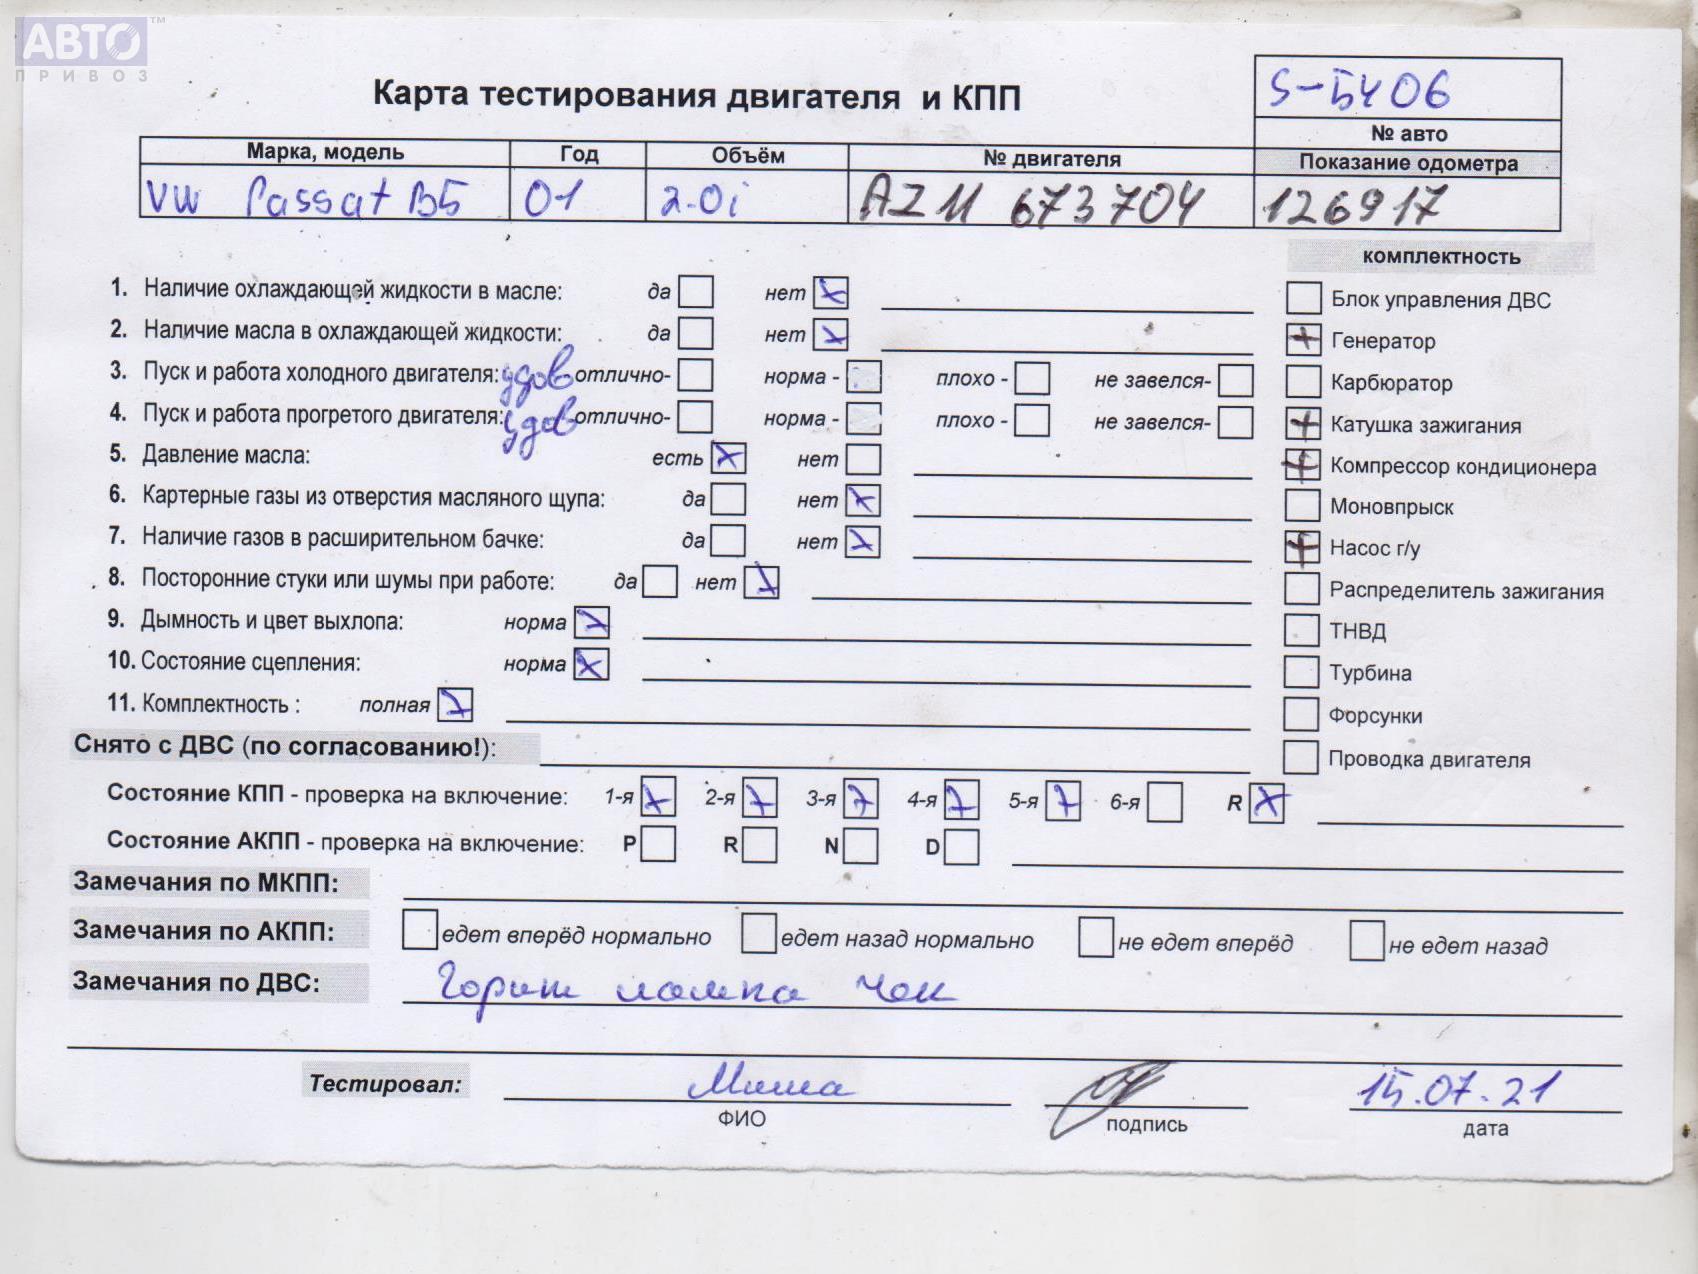 АВТО™
ПРИВОЗ
Карта тестирования двигателя и КПП
S-5406
№ авто
Марка, модель Год Объём № двигателя Показание одометра
VW Passat B5 01 2.0i AZM 673704 126917
комплектность
1. Наличие охлаждающей жидкости в масле: да нет x
Блок управления ДВС
2. Наличие масла в охлаждающей жидкости: да нет x
+ Генератор
3. Пуск и работа холодного двигателя: удов отлично- норма - плохо - не завелся-
Карбюратор
4. Пуск и работа прогретого двигателя: удов отлично- норма - плохо - не завелся-
+ Катушка зажигания
5. Давление масла: есть x нет
+ Компрессор кондиционера
6. Картерные газы из отверстия масляного щупа: да нет x
Моновпрыск
7. Наличие газов в расширительном бачке: да нет x
+ Насос г/у
8. Посторонние стуки или шумы при работе: да нет x
Распределитель зажигания
9. Дымность и цвет выхлопа: норма x
ТНВД
10. Состояние сцепления: норма x
Турбина
11. Комплектность : полная x
Форсунки
Снято с ДВС (по согласованию!):
Проводка двигателя
Состояние КПП - проверка на включение: 1-я x 2-я x 3-я x 4-я x 5-я x 6-я R x
Состояние АКПП - проверка на включение: P R N D
Замечания по МКПП:
Замечания по АКПП: едет вперёд нормально едет назад нормально не едет вперёд не едет назад
Замечания по ДВС: Горит лампа Чек
Тестировал: Миша 15.07.21
ФИО подпись дата